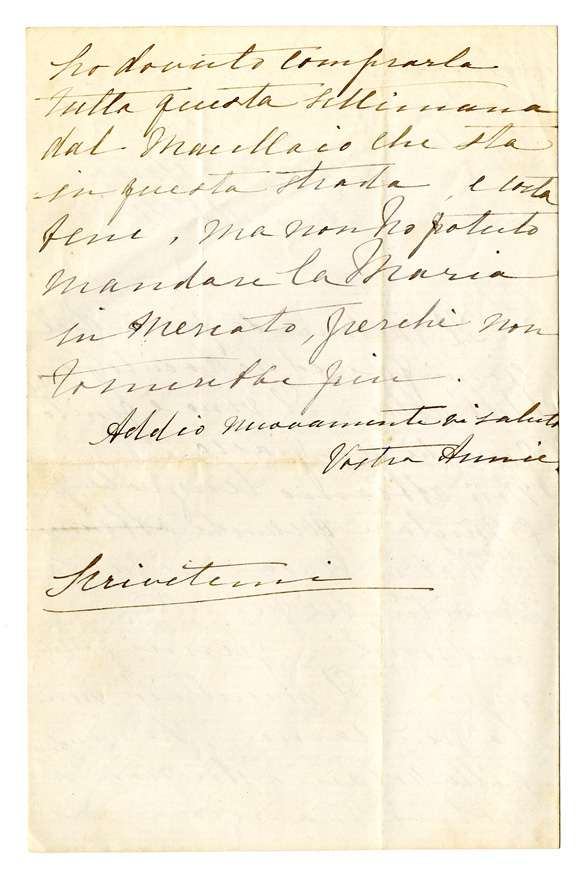 ho dovuto comprarla
tutta questa settimana
dal Macellaio che sta
in questa strada, e costa
bene, ma non ho potuto
mandare la Maria
in Mercato, perchè non
tornerebbe piu.
Addio nuovamente vi saluto
Vostra Annie.
Scrivetemi